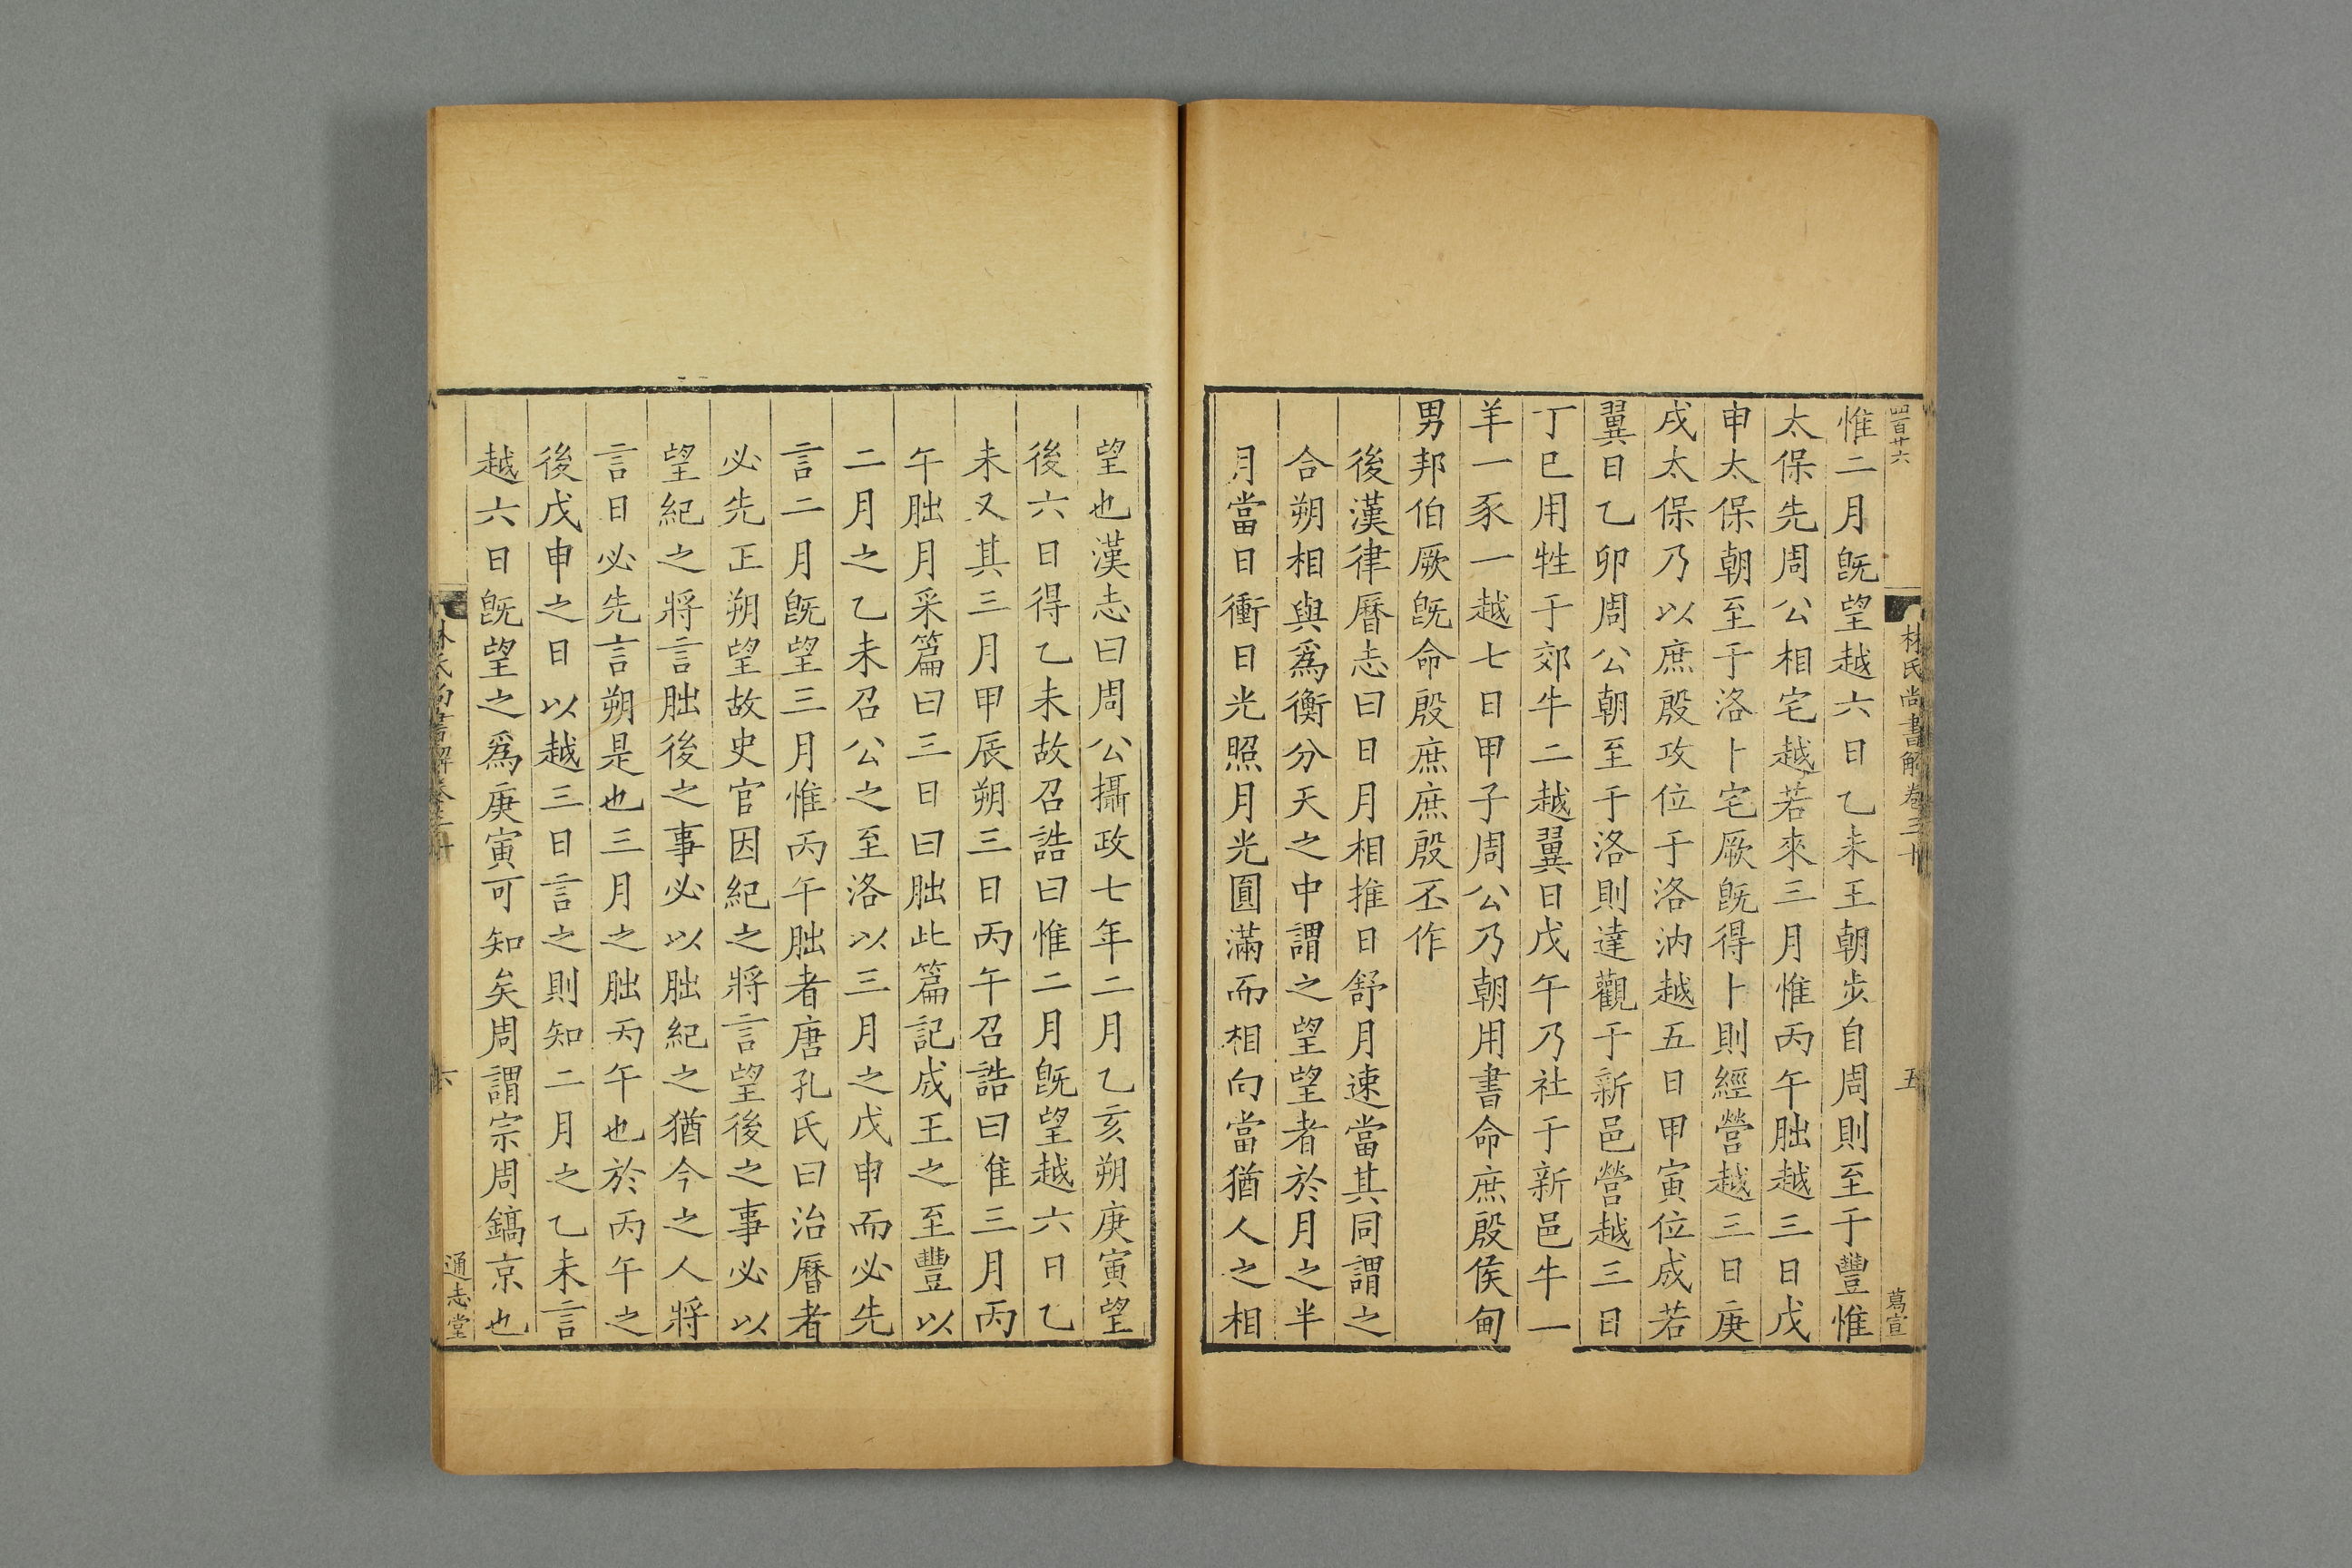 四百廿六
林氏尚書解卷三十
五
葛宣
惟二月旣望越六日乙未王朝步自周則至于豐惟
太保先周公相宅越若來三月惟丙午朏越三日戊
申太保朝至于洛卜宅厥旣得卜則經營越三日庚
戌太保乃以庶殷攻位于洛汭越五日甲寅位成若
翼日乙卯周公朝至于洛則達觀于新邑營越三日
丁巳用牲于郊牛二越翼日戊午乃社于新邑牛一
羊一豕一越七日甲子周公乃朝用書命庶殷侯甸
男邦伯厥旣命殷庶庶殷丕作
後漢律曆志曰日月相推日舒月速當其同謂之
合朔相與爲衡分天之中謂之望望者於月之半
月當日衝日光照月光圓滿而相向當猶人之相
望也漢志曰周公攝政七年二月乙亥朔庚寅望
後六日得乙未故召誥曰惟二月旣望越六日乙
未又其三月甲辰朔三日丙午召誥曰惟三月丙
午朏月采篇曰三日曰朏此篇記成王之至豐以
二月之乙未召公之至洛以三月之戊申而必先
言二月旣望三月惟丙午朏者唐孔氏曰治曆者
必先正朔望故史官因紀之將言望後之事必以
望紀之將言朏後之事必以朏紀之猶今之人將
言日必先言朔是也三月之朏丙午也於丙午之
後戊申之日以越三日言之則知二月之乙未言
越六日旣望之爲庚寅可知矣周謂宗周鎬京也
林氏尚書解卷三十
六
通志堂